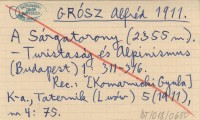 GRÓSZ Alfréd 1911.
A Sárgatorony (2355 m).
- Turistaság és Alpinizmus
(Budapest) 1: 311-316.
Rec.: [Komarnicki Gyula]
K-a, Taternik (Lwów) 5 (1911),
nr 4: 75.